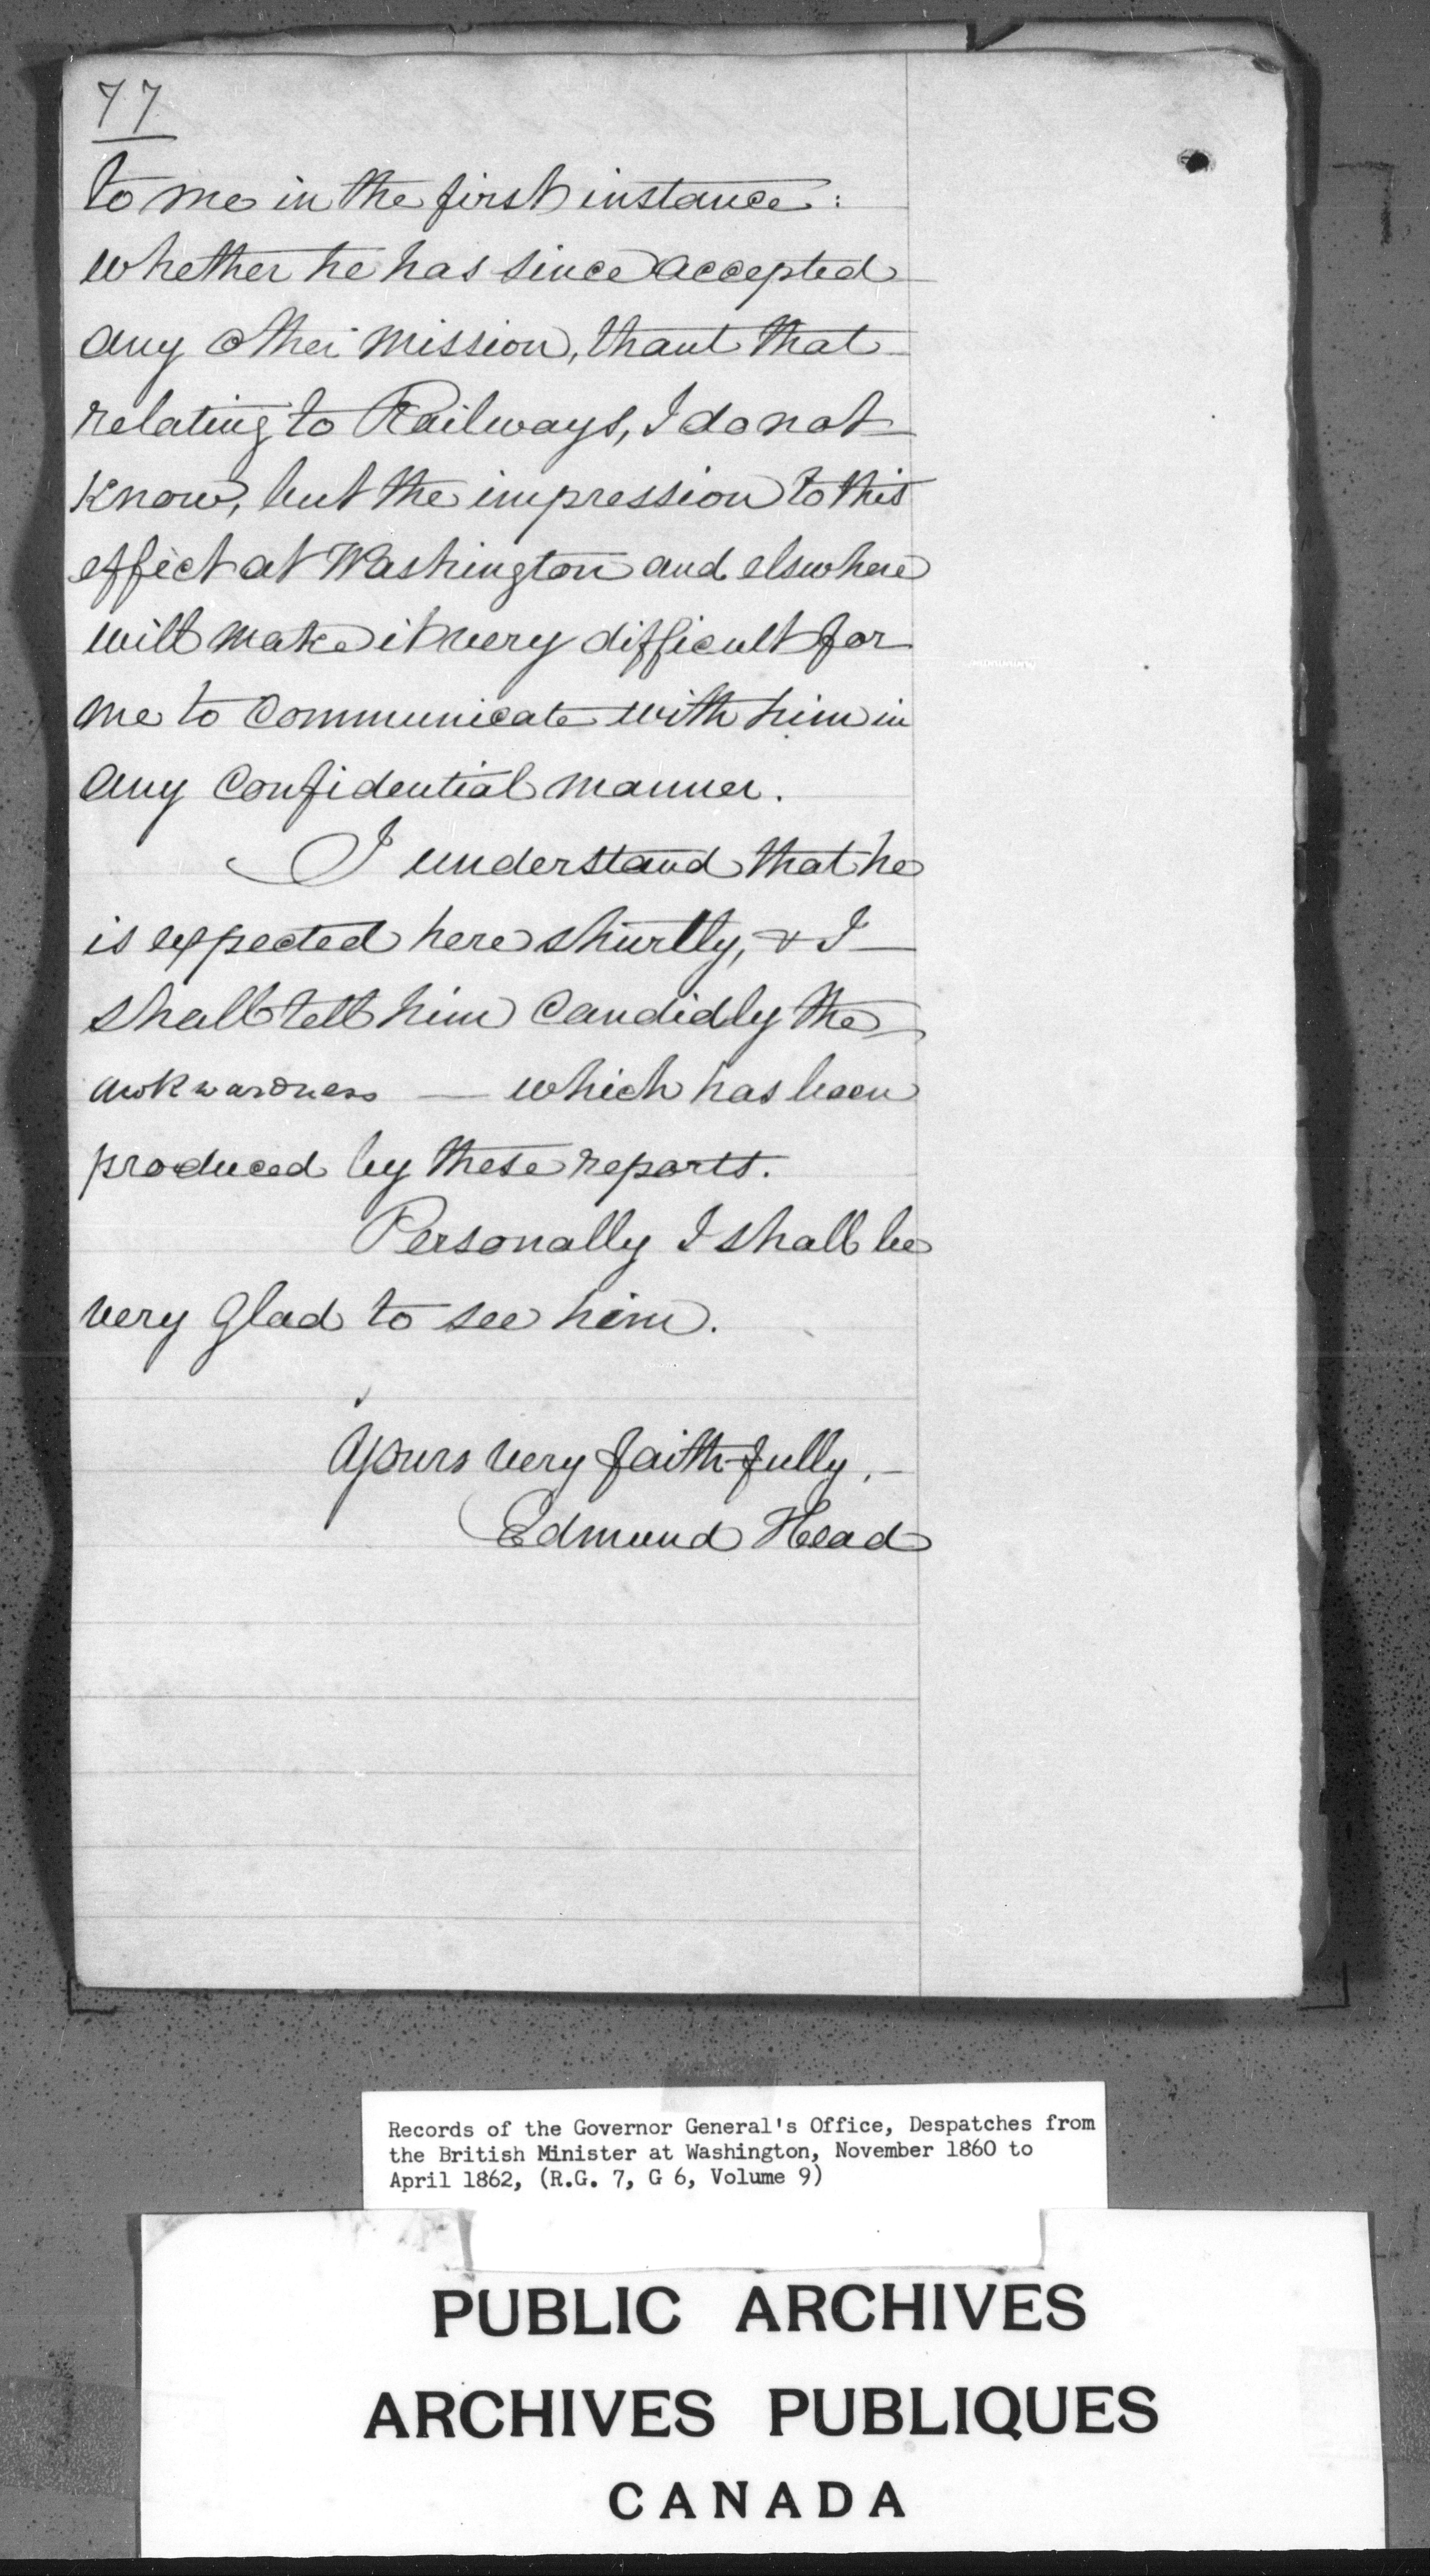 77
to me in the first instance:
whether he has since accepted
any other mission, thant that
relating to Railways, I do not
know, but the impression to this
effect at Washington and elswhere
will make it very difficult for
me to communicate with him in
any confidential manner.
I understand that he
is expected here shurtly, & I
shall tell him candidly the
awkwardness — which has been
produced by these reports.
Personally I shall be
very glad to see him.
Yours very faithfully,
Edmund Head
Records of the Governor General's Office, Despatches from
the British Minister at Washington, November 1860 to
April 1862, (R.G. 7, G 6, Volume 9)
PUBLIC ARCHIVES
ARCHIVES PUBLIQUES
CANADA